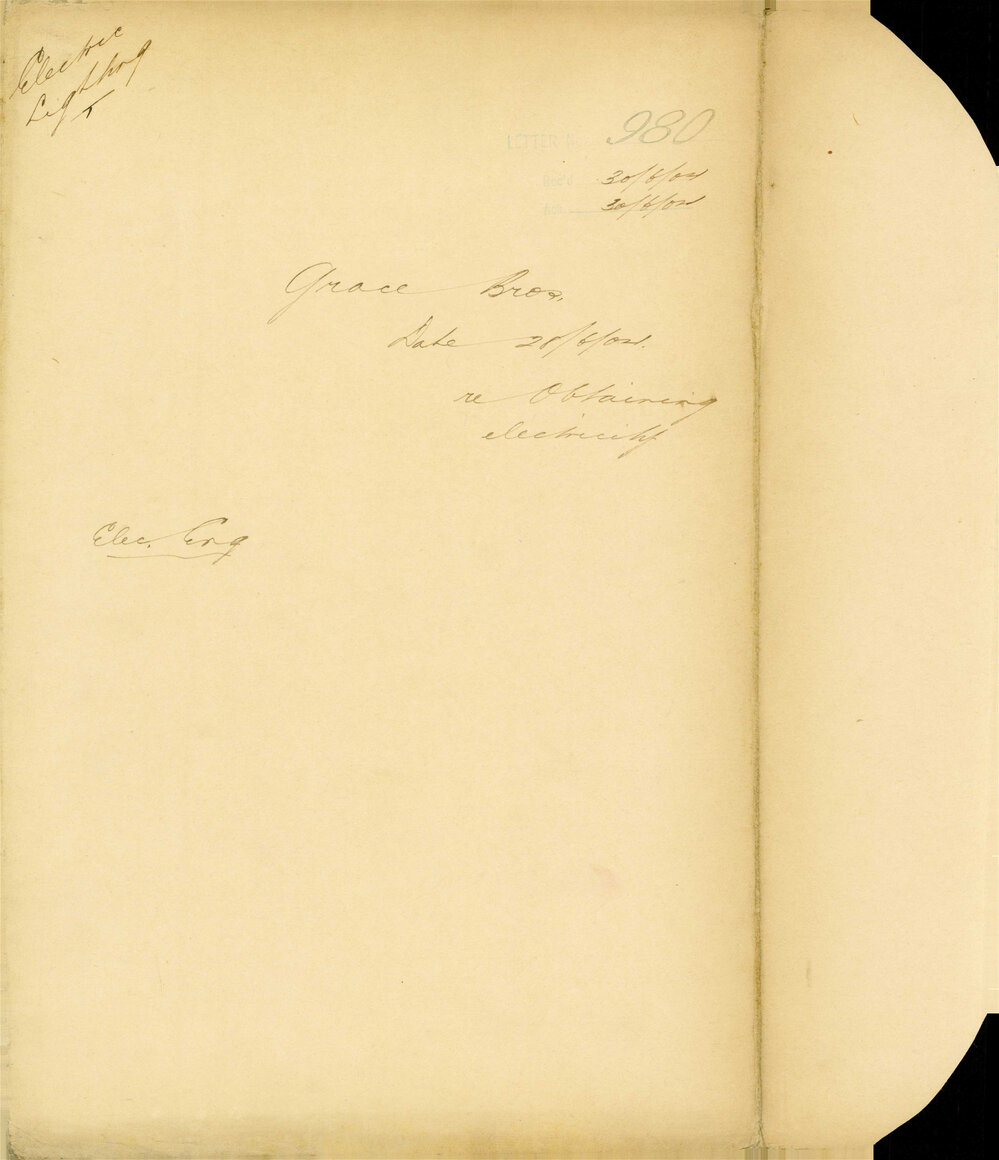 Electric
Lighting
LETTER No. 980
Rec'd 30/6/04
Ack. 30/6/04
Grace Bros.
Date 28/6/04.
re Obtaining
electricity
Elec. Eng